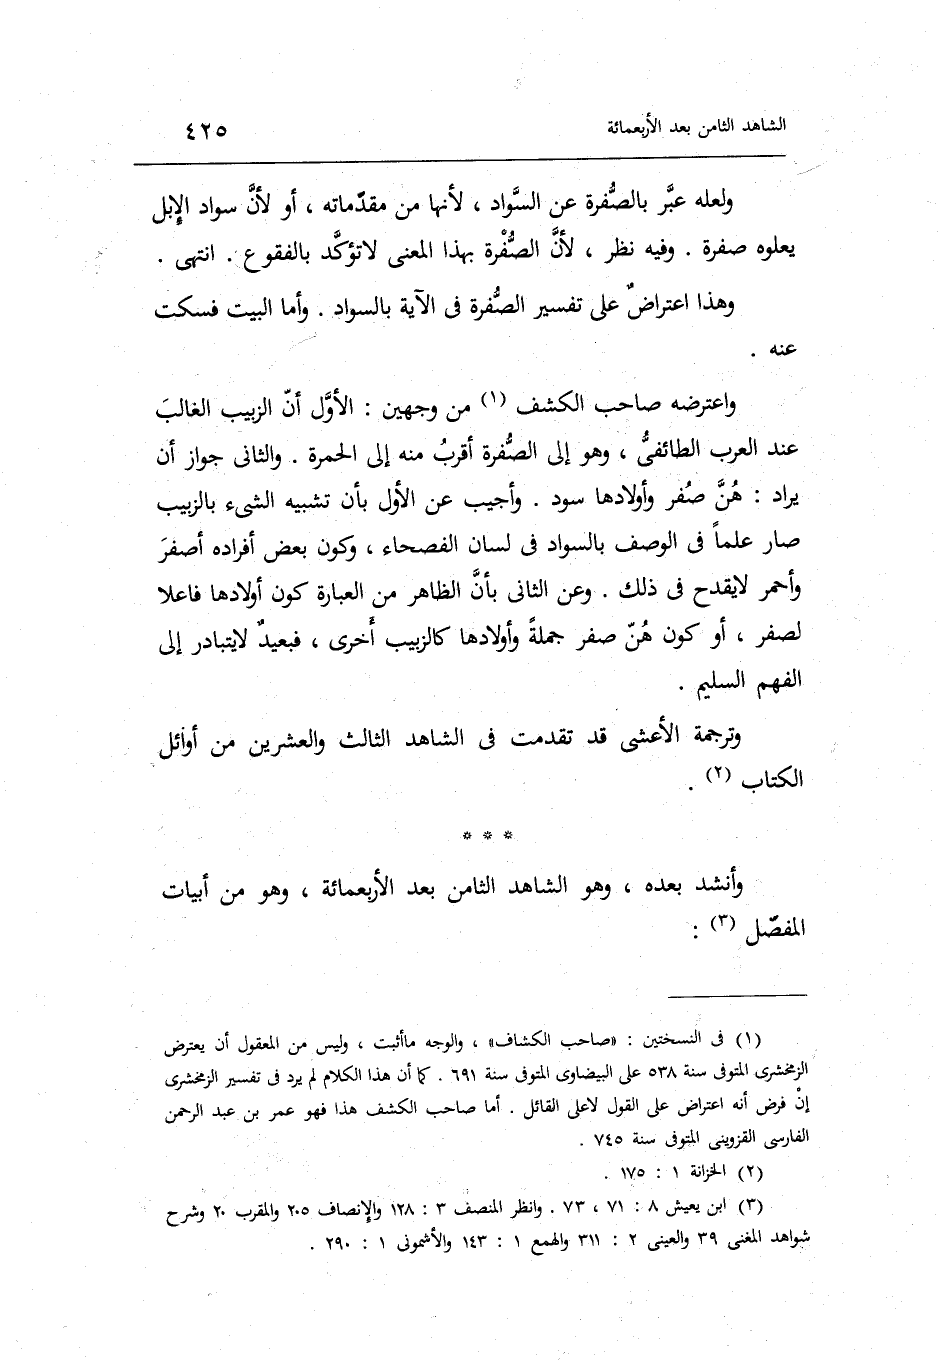 الشاهد الثامن بعد الأربعمائة ٤٢٥
ولعله عبَّر بالصُّفرة عن السَّواد ، لأنها من مقدّماته ، أو لأنَّ سواد الإبل
يعلوه صفرة . وفيه نظر ، لأنَّ الصُّفْرة بهذا المعنى لاتؤكَّد بالفقوع . انتهى .
وهذا اعتراضٌ على تفسير الصُّفرة فى الآية بالسواد . وأما البيت فسكت
عنه .
واعترضه صاحب الكشف (١) من وجهين : الأوَّل أنّ الزبيب الغالبَ
عند العرب الطائفىُّ ، وهو إلى الصُّفرة أقربُ منه إلى الحمرة . والثانى جواز أن
يراد : هُنَّ صُفر وأولادها سود . وأجيب عن الأول بأن تشبيه الشىء بالزبيب
صار علماً فى الوصف بالسواد فى لسان الفصحاء ، وكون بعض أفراده أصفرَ
وأحمر لايقدح فى ذلك . وعن الثانى بأنَّ الظاهر من العبارة كون أولادها فاعلا
لصفر ، أو كون هُنّ صفر جملةً وأولادها كالزبيب أُخرى ، فبعيدٌ لايتبادر إلى
الفهم السليم .
وترجمة الأعشى قد تقدمت فى الشاهد الثالث والعشرين من أوائل
الكتاب (٢) .
* * *
وأنشد بعده ، وهو الشاهد الثامن بعد الأربعمائة ، وهو من أبيات
المفصّل (٣) :
(١) فى النسختين : «صاحب الكشاف» ، والوجه ماأثبت ، وليس من المعقول أن يعترض
الزمخشرى المتوفى سنة ٥٣٨ على البيضاوى المتوفى سنة ٦٩١ . كما أن هذا الكلام لم يرد فى تفسير الزمخشرى
إنْ فرض أنه اعتراض على القول لاعلى القائل . أما صاحب الكشف هذا فهو عمر بن عبد الرحمن
الفارسى القزوينى المتوفى سنة ٧٤٥ .
(٢) الخزانة ١ : ١٧٥ .
(٣) ابن يعيش ٨ : ٧١ ، ٧٣ . وانظر المنصف ٣ : ١٢٨ والإنصاف ٢٠٥ والمقرب ٢٠ وشرح
شواهد المغنى ٣٩ والعينى ٢ : ٣١١ والهمع ١ : ١٤٣ والأشمونى ١ : ٢٩٠ .